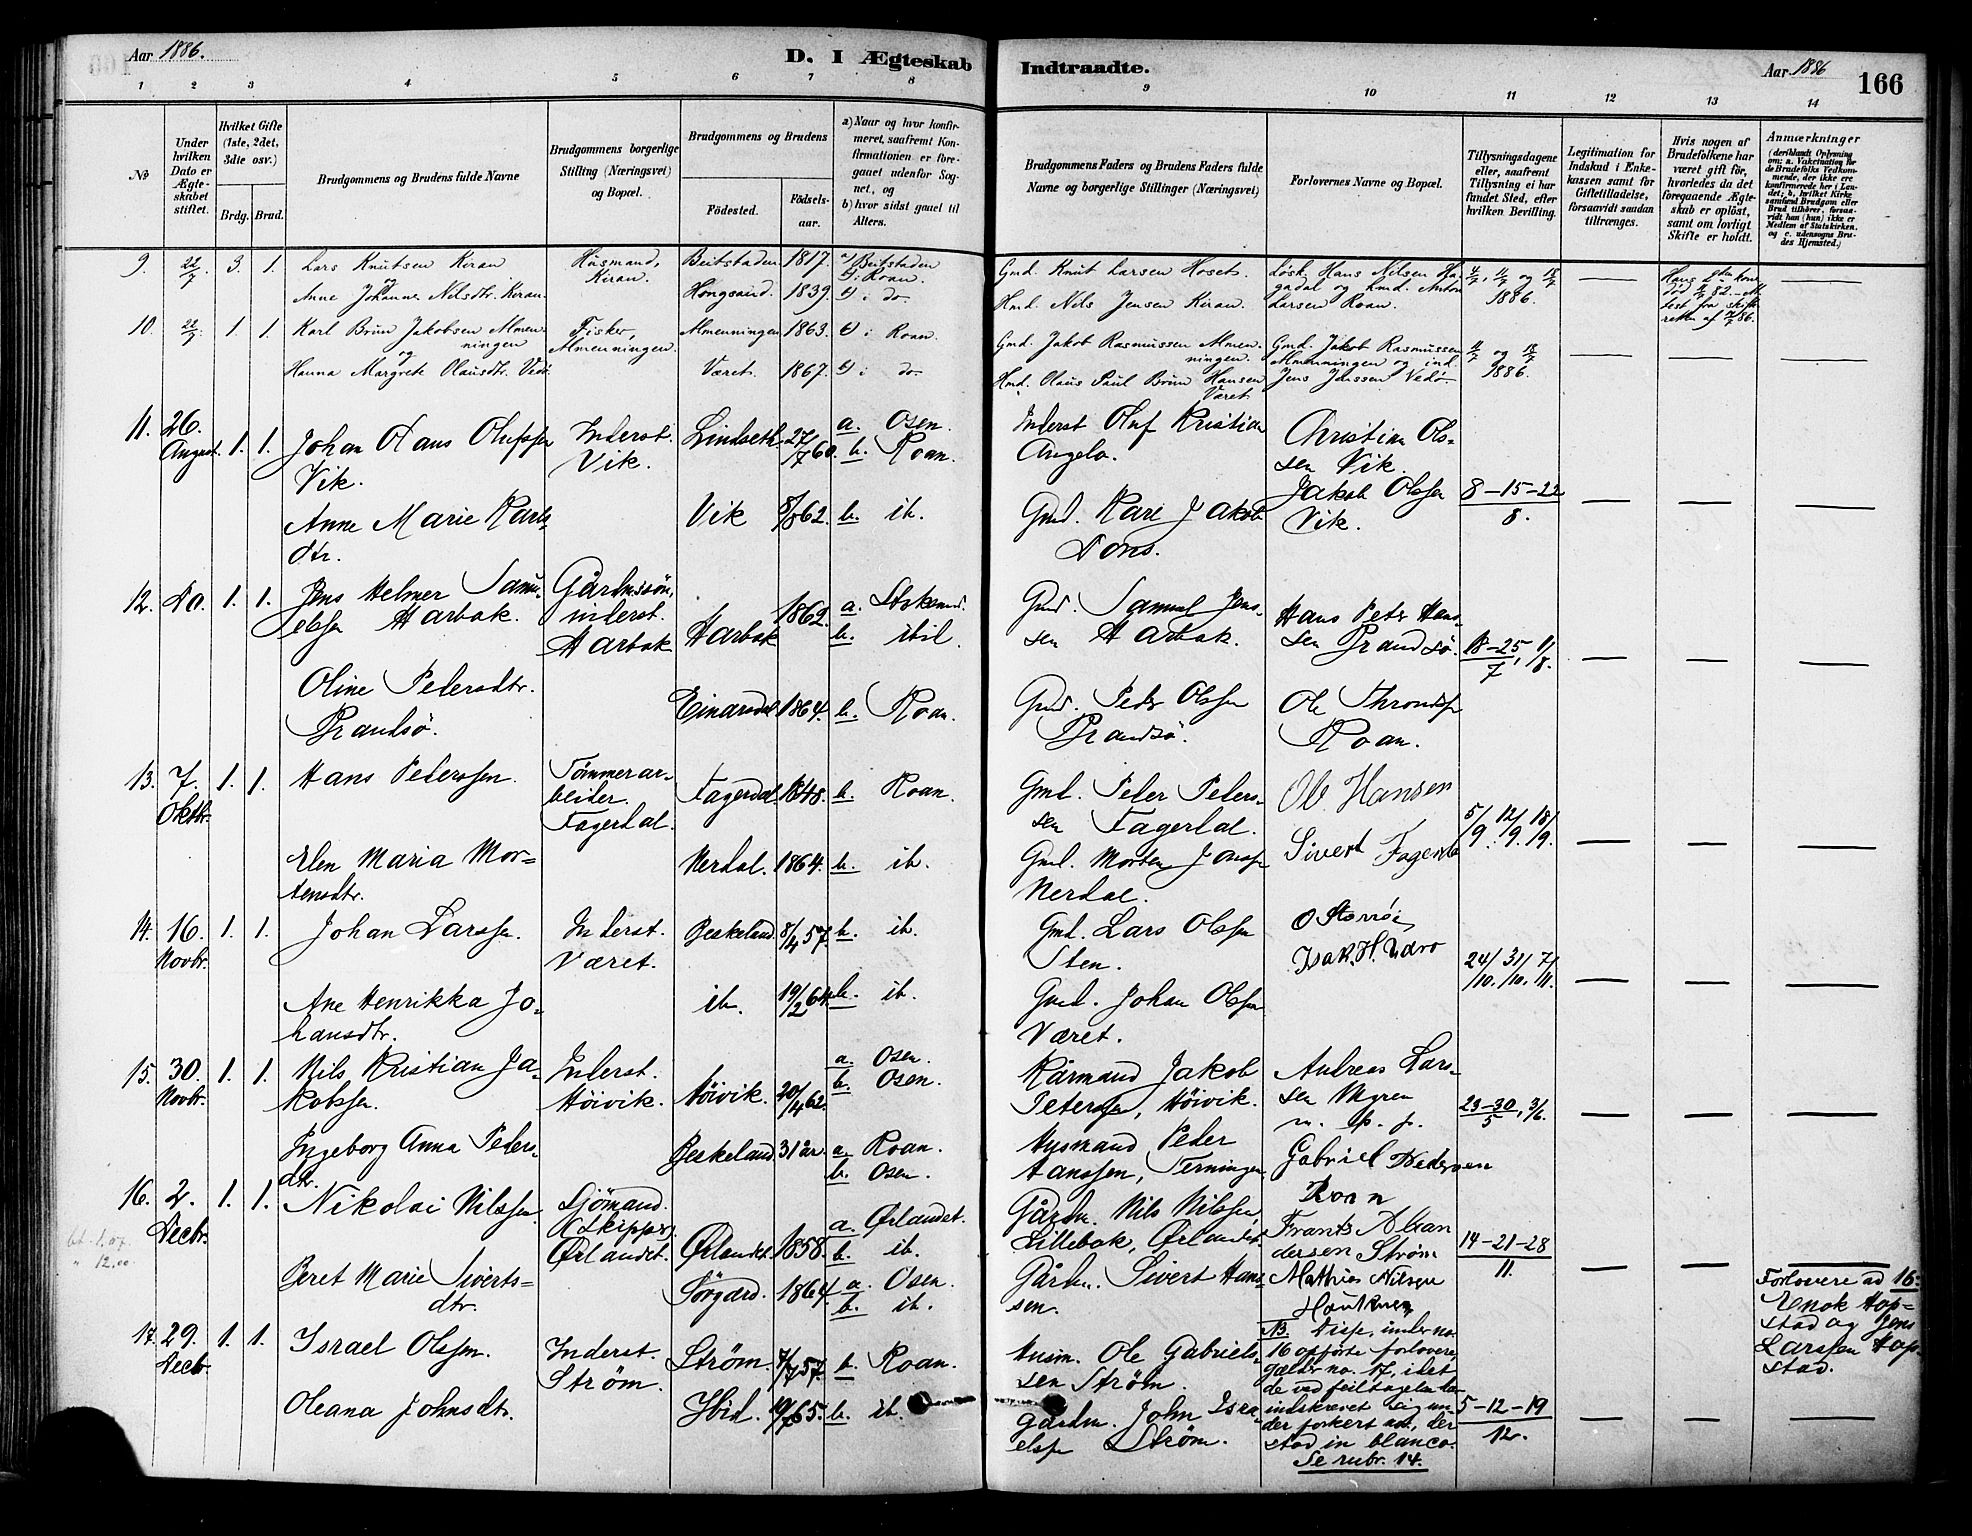 Aar 1886.
D. I Ægteskab
Indtraadte.
Aar 1886
166
1 2 3 4 5 6 7 8
9 10 11 12 13 14
No
Under hvilken Dato er Ægteskabet stiftet.
Hvilket Gifte (1ste, 2det, 3die osv.)
Brdg. Brud.
Brudgommens og Brudens fulde Navne
Brudgommens borgerlige Stilling (Næringsvei) og Bopæl.
Brudgommens og Brudens
Födested.
Födselsaar.
a) Naar og hvor konfirmeret, saafremt Konfirmationen er foregaaet udenfor Sognet, og
b) hvor sidst gaaet til Alters.
Brudgommens Faders og Brudens Faders fulde Navne og borgerlige Stillinger (Næringsvei)
Forlovernes Navne og Bopæl.
Tillysningsdagene eller, saafremt Tillysning ei har fundet Sted, efter hvilken Bevilling.
Legitimation for Indskud i Enkekassen samt for Giftetilladelse, forsaavidt saadan tiltrænges.
Hvis nogen af Brudefolkene har været gift för, hvorledes da det foregaaende Ægteskab er oplöst, samt om lovligt Skifte er holdt.
Anmærkninger
9. 22/7. 3. 1. Lars Knutsen Kiran Husmand, Kiran. Beitstaden 1817. a) Beitstaden b) i Roan.
og
Anne Johanna Nilsdtr. Kiran. Hongsand. 1839. b) i do.
Gmd. Knut Larsen Hoset.
Hmd. Nils Jensen Kiran.
Løsk. Hans Nilsen
og Hmd. Anton
Larsen Roan.
4/7, 11/7 og 18/7
1886.
10. 22/7. 1. 1. Karl Brun Jakobsen Almenningen Fisker, Almenningen. Almenningen 1863. b) i Roan.
og
Hanna Margrete Olausdtr. Vedø. Været. 1867. b) i do.
Gmd. Jakob Rasmussen Almenningen.
Hmd. Olaus Paul Brun Hansen Været
Gmd. Jakob Rasmussen
Almenningen og ind.
Jens Jenssen Vedø
11/7 og 18/7
1886.
11. 26. August. 1. 1. Johan Hans Olufssen Vik. Inderst. Vik. Lindseth 27/7 60. a. Osen. b. Roan.
Anne Marie Karlsdtr. Vik 8/8 62. b. ib.
Inderst Oluf Kristian
Angela.
Gmd. Karl Jakob
Dons.
Christian Olssen Vik.
Jakob Olssen
Vik.
8–15–22
8.
12. Do. 1. 1. Jens Helmer Samuelssen Harbak. Gårdmssön, inderst. Harbak Harbak 1862. a. b. ibid.
Oline Petersdtr. Brandsö. Einarsdal 1864. b. Roan.
Gmd. Samuel Jenssen Harbak.
Gmd. Peder Olssen
Brandsö.
Hans Peter Hanssen Brandsö.
Ole Throndss
Roan.
18–25/7, 1/8.
13. 7. Oktbr. 1. 1. Hans Peterssen. Tömmerarbeider. Fagerdal. Fagerdal 1848. b. Roan.
Elen Maria Mortensdtr. Nerdal. 1864. b. ib.
Gmd. Peter Peterssen Fagerdal.
Gmd. Morten Janss
Nerdal.
Ole Hansen
Sivert Fagerdal
5/9. 12/9. 18/9.
14. 16. Novbr. 1. 1. Johan Larssen. Inderst. Været. Beskeland. 8/4 57. b. ib.
Ane Henrikka Johansdtr. ib. 19/2 64. b. ib.
Gmd. Lars Olssen
Sten.
Gmd. Johan Olssen
Været.
O Storrøe
Isak. H. Udro
24/10. 31/10. 7/11.
15. 30. Novbr. 1. 1. Nils Kristian Jakobssen. Inderst. Höivik. Höivik. 20/4 62. a. Osen. b. Osen.
Ingeborg Anna Petersdtr. Beskeland. 31 år. a. Roan. b. Osen.
Kårmand Jakob
Peterssen, Höivik.
Husmand Peder
Hanssen, Terningen
Andreas Larssen Myren
m. p. p.
Gabriel Pedersen
Roan
23–30/5, 3/6.
16. 2. Decbr. 1. 1. Nikolai Nilssen. Sjömand. (Skipper) Ørlandet. Ørlandet 1858. a. Ørlandet. b. ib.
Beret Marie Sivertsdtr. Sörgård. 1864. a. Osen. b. ib.
12.00
Gårdm. Nils Nilssen
Lillebak, Ørlandet.
Gårdm. Sivert Hanssen.
Frants Alexandersen Strøm
Mathias Nilsen
14–21–28
11.
Forlovere ad 16:
Enok Hopstad og Jens
Larssen Hopstad.
17. 29. Decbr 1. 1. Israel Olssen. Inderst. Ström. Ström. 7/7 57. b. Roan.
Oleana Johnsdtr. Ibid. 19/7 65. b. ib.
Husm. Ole Gabrielssen Ström.
Gårdm. John Israelss Ström.
NB. Disse, under no.
16 opförte forlovere
gælder no. 17, idet
de ved feiltagelse har
indskrevet sig under forkert no., der
stod in blanco.
Se rubr. 14.
5–12–19
12.